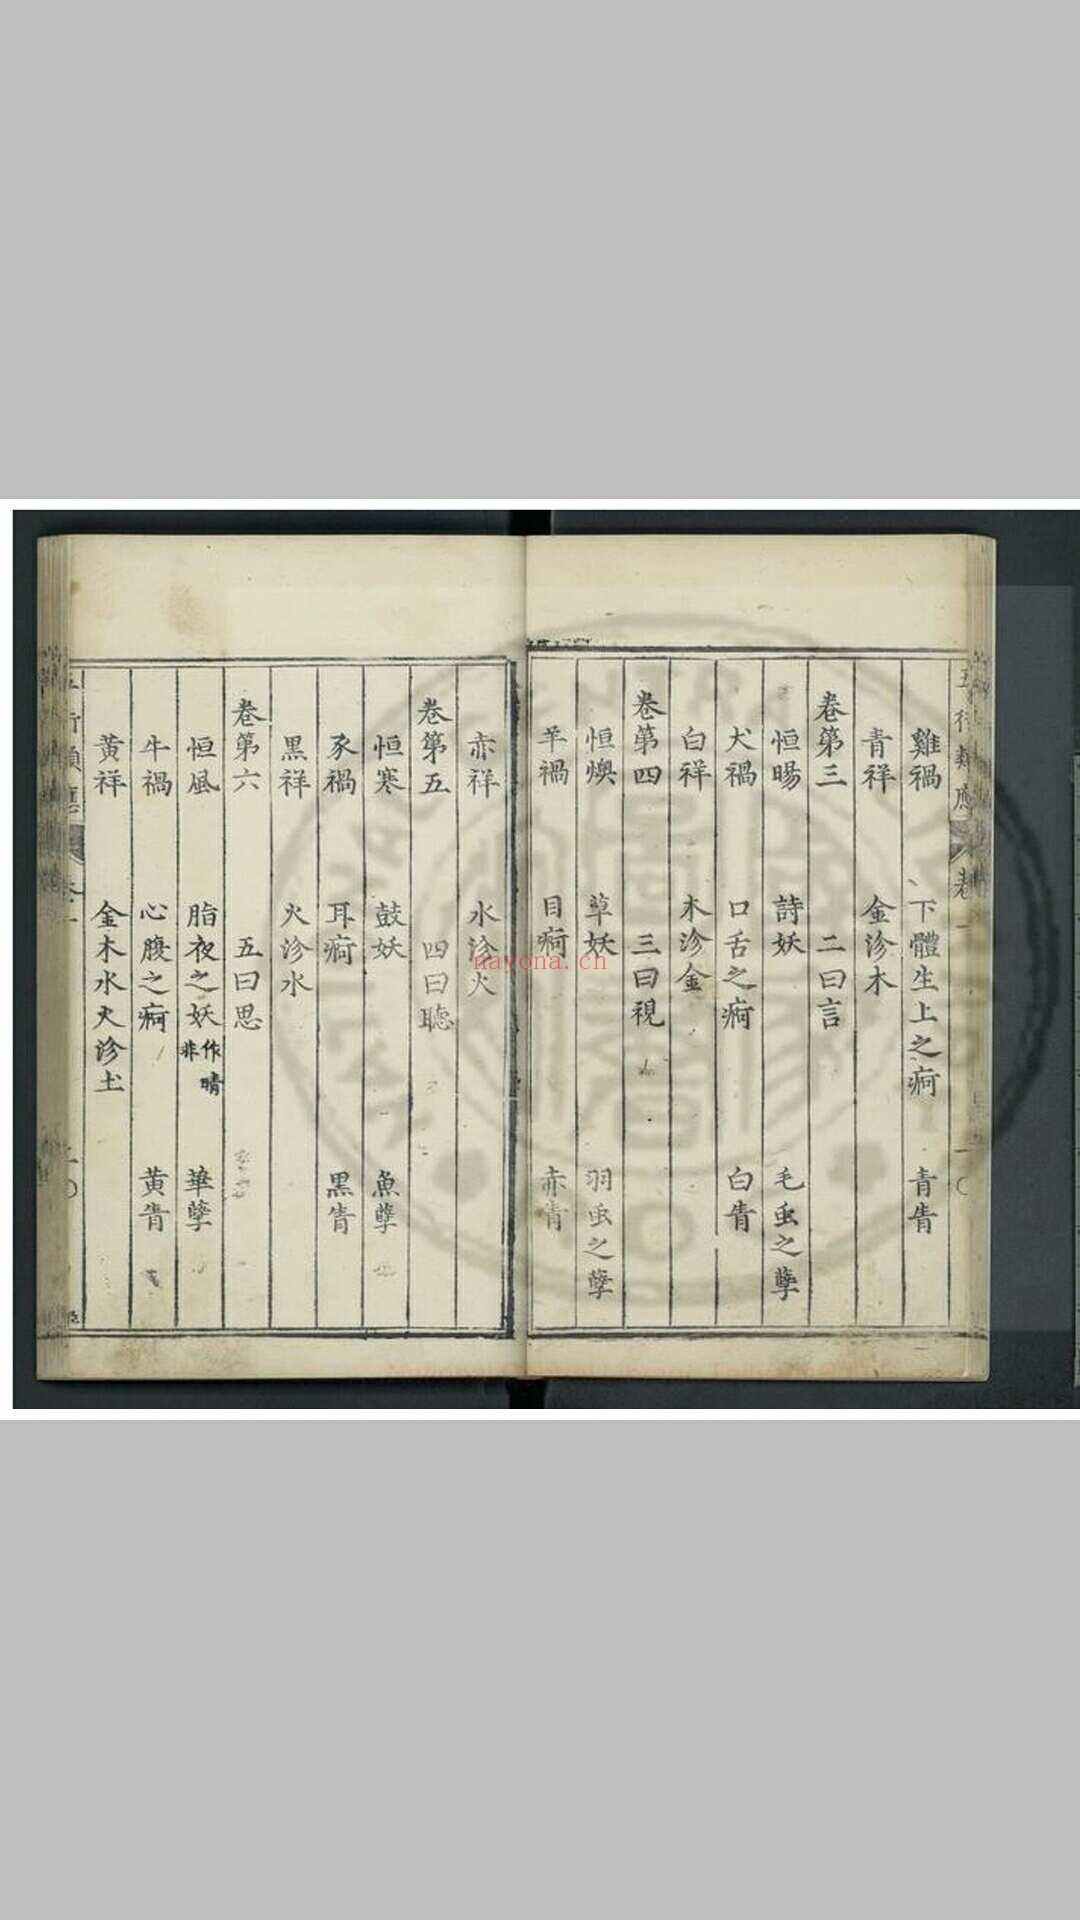 雞禍 下體生上之痾 青眚
青祥 金沴木
卷第三 二曰言
恒暘 詩妖 毛虫之孽
犬禍 口舌之痾 白眚
白祥 木沴金
卷第四 三曰視
恒燠 草妖 羽虫之孽
羊禍 目痾 赤眚
赤祥 水沴火
卷第五 四曰聽
恒寒 鼓妖 魚孽
豕禍 耳痾 黑眚
黑祥 火沴水
卷第六 五曰思
恒風 脂夜之妖 作晴非 華孽
牛禍 心腹之痾 黃眚
黃祥 金木水火沴土
五行類應 卷一
nayona.cn